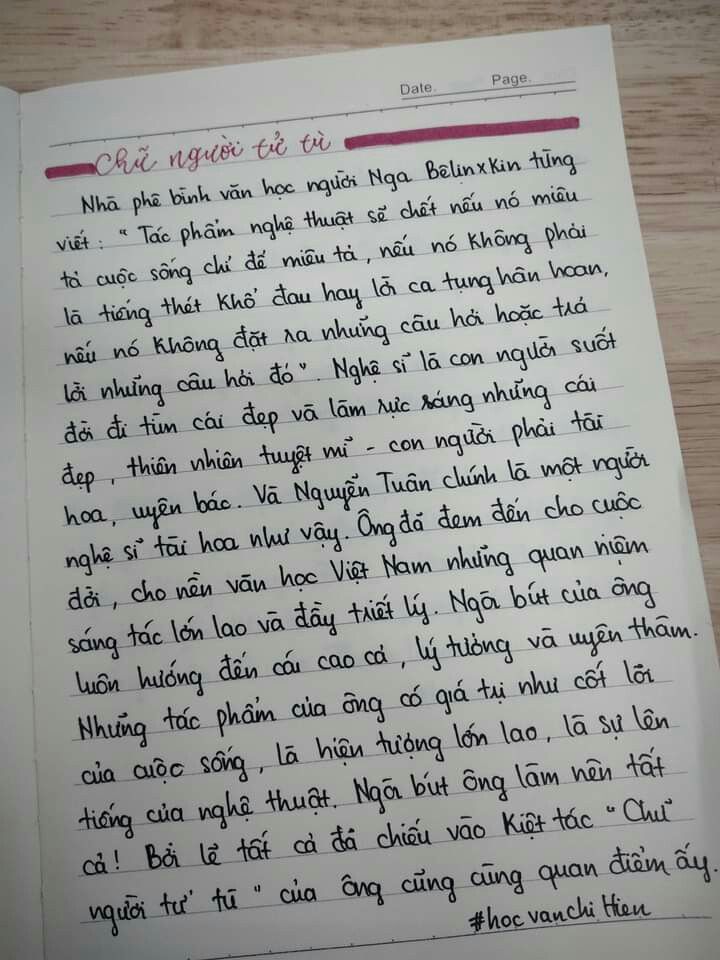 Date. Page.
Chữ người tử tù
Nhà phê bình văn học người Nga Bêlinxkin từng
viết: "Tác phẩm nghệ thuật sẽ chết nếu nó miêu
tả cuộc sống chỉ để miêu tả, nếu nó không phải
là tiếng thét khổ đau hay lời ca tụng hân hoan,
nếu nó không đặt ra những câu hỏi hoặc trả
lời những câu hỏi đó". Nghệ sĩ là con người suốt
đời đi tìm cái đẹp và làm rực sáng những cái
đẹp, thiên nhiên tuyệt mĩ - con người phải tài
hoa, uyên bác. Và Nguyễn Tuân chính là một người
nghệ sĩ tài hoa như vậy. Ông đã đem đến cho cuộc
đời, cho nền văn học Việt Nam những quan niệm
sáng tác lớn lao và đầy triết lý. Ngòi bút của ông
luôn hướng đến cái cao cả, lý tưởng và uyên thâm.
Những tác phẩm của ông có giá trị như cốt lõi
của cuộc sống, là hiện tượng lớn lao, là sự lên
tiếng của nghệ thuật. Ngòi bút ông làm nên tất
cả! Bởi lẽ tất cả đã chiếu vào kiệt tác "Chữ
người tử tù" của ông cũng cùng quan điểm ấy.
#hocvanchiHien